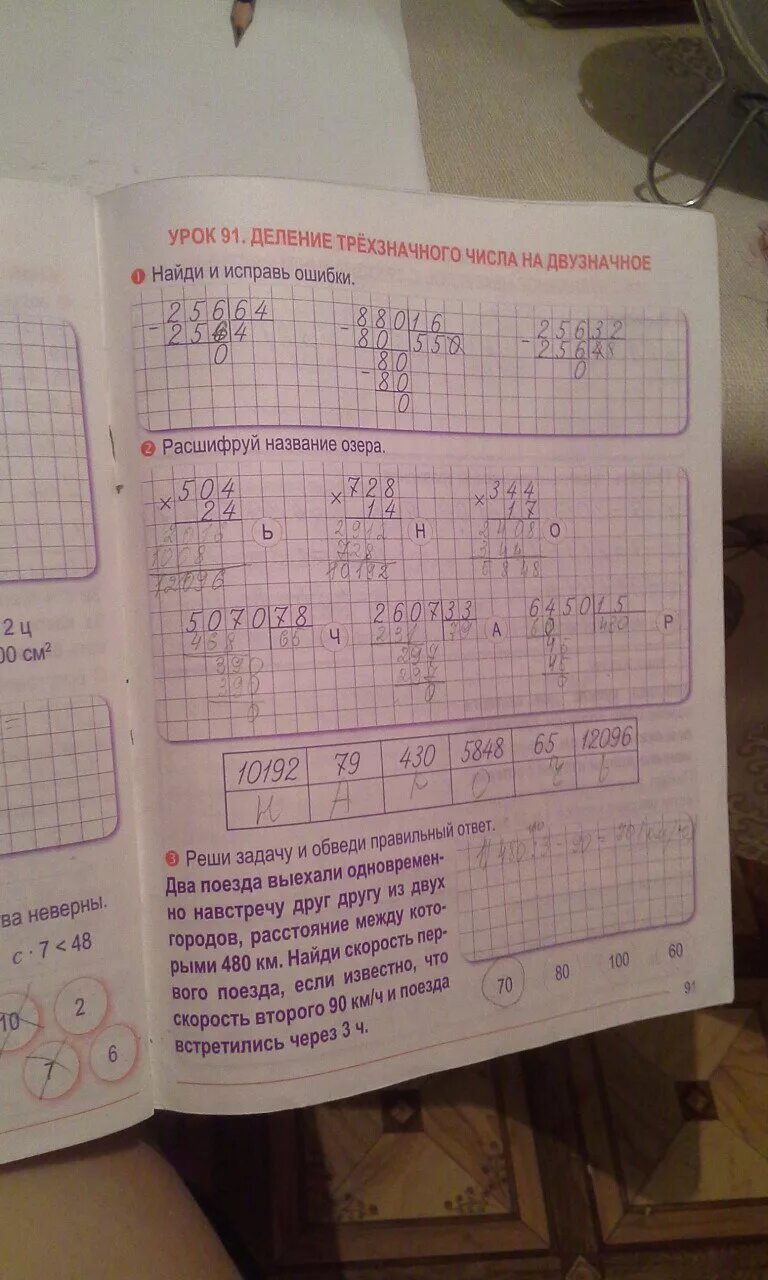 УРОК 91. ДЕЛЕНИЕ ТРЁХЗНАЧНОГО ЧИСЛА НА ДВУЗНАЧНОЕ
1 Найди и исправь ошибки.
- 25664
2564
0
- 88016
80 550
- 80
80
0
- 25632
25648
0
2 Расшифруй название озера.
× 504
24
2016
12096
Ь
× 728
14
2912
728
10192
Н
× 344
17
2408
344
5848
О
507078
468 65
390
390
0
Ч
260733
79
0
А
645015
60
45
45
0
Р
10192 79 430 5848 65 12096
Н А Р О Ч Ь
3 Реши задачу и обведи правильный ответ.
Два поезда выехали одновремен-
но навстречу друг другу из двух
городов, расстояние между кото-
рыми 480 км. Найди скорость пер-
вого поезда, если известно, что
скорость второго 90 км/ч и поезда
встретились через 3 ч.
1) 480 : 3 - 90 =
70 80 100 60
91
2 ц
00 см²
ва неверны.
с · 7 < 48
10 2
7 6